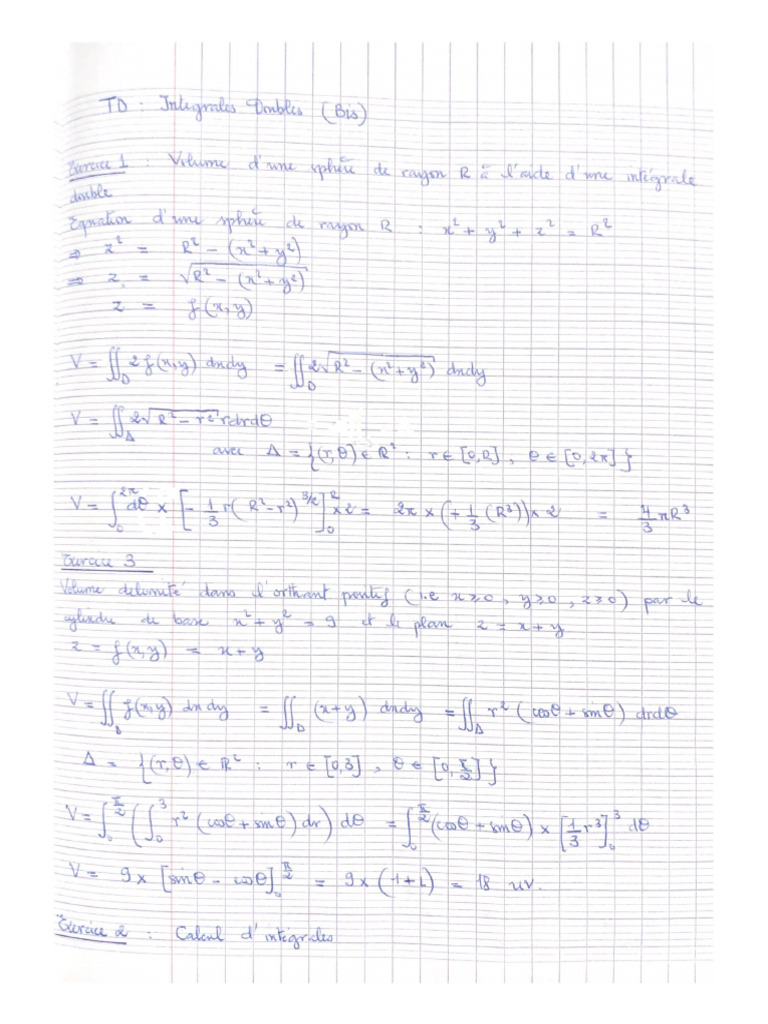 TD : Intégrales Doubles (Bis)
Exercice 1 : Volume d'une sphère de rayon R à l'aide d'une intégrale
double
Equation d'une sphère de rayon R : x² + y² + z² = R²
⇒ z² = R² − (x² + y²)
⇒ z = √(R² − (x² + y²))
z = f(x,y)
V = ∬_D 2 f(x,y) dxdy = ∬_D 2√(R² − (x² + y²)) dxdy
V = ∬_Δ 2√(R² − r²) r dr dθ
avec Δ = {(r,θ) ∈ R² : r ∈ [0,R] , θ ∈ [0,2π]}
V = ∫_0^{2π} dθ × [− 1/3 r (R² − r²)^{3/2}]_0^R × 2 = 2π × (+ 1/3 (R³)) × 2 = 4/3 πR³
Exercice 3
Volume délimité dans l'orthant positif (i.e x≥0 , y≥0 , z≥0) par le
cylindre de base x² + y² = 9 et le plan z = x + y
z = f(x,y) = x + y
V = ∬_D f(x,y) dxdy = ∬_D (x+y) dxdy = ∬_Δ r² (cosθ + sinθ) drdθ
Δ = {(r,θ) ∈ R² : r ∈ [0,3] , θ ∈ [0, π/2]}
V = ∫_0^{π/2} (∫_0^3 r² (cosθ + sinθ) dr) dθ = ∫_0^{π/2} (cosθ + sinθ) × [1/3 r³]_0^3 dθ
V = 9 × [sinθ − cosθ]_0^{π/2} = 9 × (1+1) = 18 uv.
Exercice 2 : Calcul d'intégrales